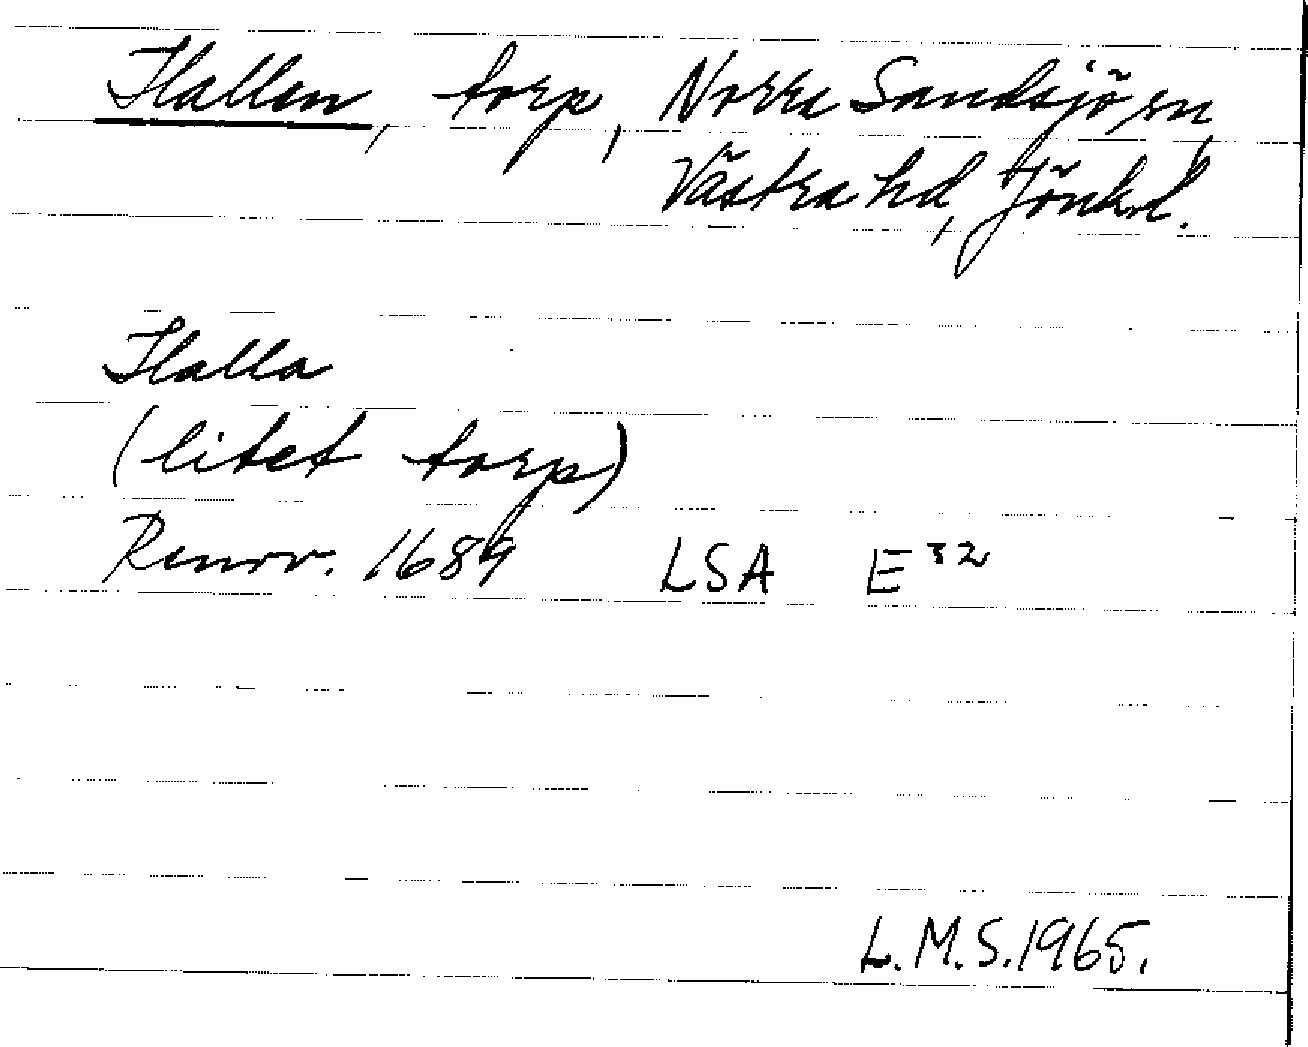 Hallen, torp, Norra Sandsjö sn,
Västra hd, Jönk.l.
Halla
(litet torp)
Renov. 1689 LSA E³²
L.M.S. 1965.